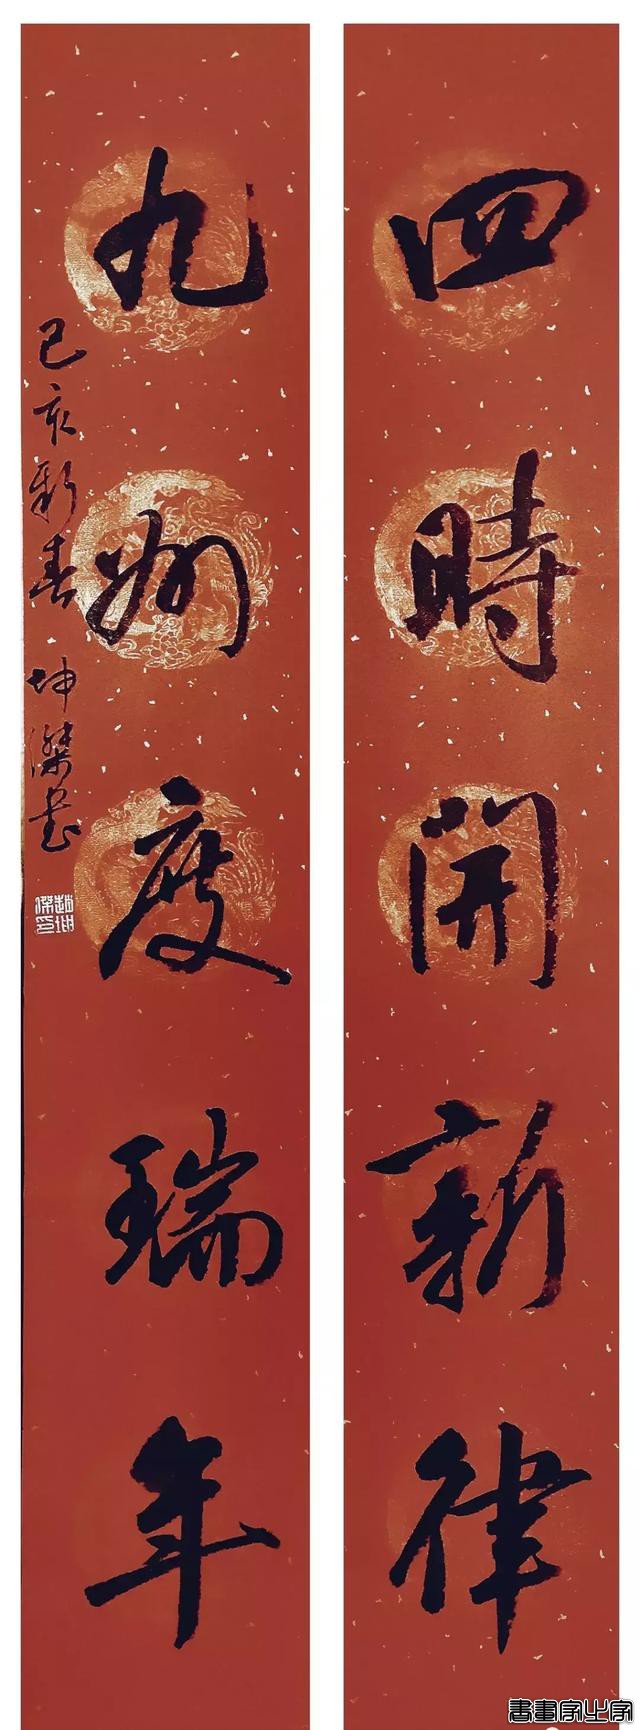 四時開新律
九州度瑞年
己亥新春 坤傑書
趙坤傑印
書畫家之家